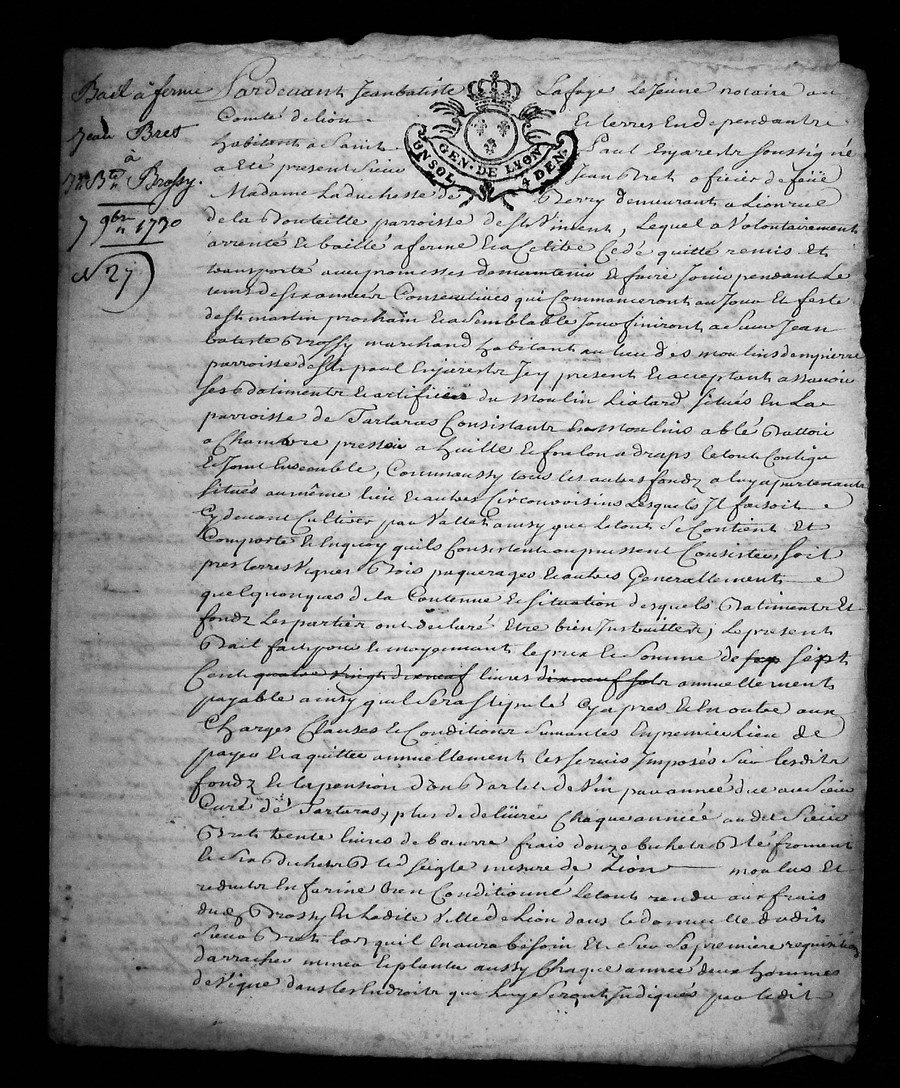 Bail a ferme
Jean Bret
à
Jn Bte Brossy.
7 9bre 1730
N 27
GEN. DE LYON
UN SOL 4 DEN.
Pardevant Jeanbatiste Lafaye Lejeune notaire au
Comté de lion Et terres En dependantes
habitant a Saint Paul Enjarestz soussigné
a Eté present Sieur Jean Bret officier de feüe
Madame La duchesse de Berry demeurant a Lion rue
de la Bouteille parroisse de St Vincent, Lequel a Volontairement
arrenté Et baillé a ferme Cedé quitté remis Et
transporté avec promesses de maintenir Et faire Jouir pendant Le
tems de six années Consecutives qui Commanceront au Jour Et feste
de St martin prochain Et a Semblable Jour finiront a Sieur Jean
batiste Brossy marchand habitant au lieu des moulins dempierre
parroisse de St paul Enjarestz Icy present Et acceptant assavoir
ses Batiments Et artifices du Moulin Liatard Situés En La
parroisse de Tartaras Consistantz En Moulins a blé Battoir
a Chanvre pressoir a huille Et foulon a draps le tout Contigu
Et Joint Ensemble, Comm'aussy tous les autres fondz a luy apartenantz
situés au même lieu Et autres Circonvoisins Lesquels Il faisoit
Cydevant Cultiver par Vallet, ainsy que le tout Se Contient Et
Comporte Et En quoy qu'ils Consistent ou puissent Consister Soit
pres terres Vignes Bois paquerages Et autres Generallement
quelquonques de la Contenue Et Situation desquels Batiments Et
fondz Les parties ont declaré Etre bien Instruittes, Le present
Bail fait pour Et moyennant le prix Et Somme de sept
Cent quatre vingt dixneuf livres dixneuf sols annuellement
payable ainsy quil Sera Stipulé Cyapres Et En outre aux
Charges Clauses Et Conditions Suivantes En premier lieu de
payer Et aquitter annuellement les Servis Imposés Sur lesdits
fondz Et la pension d'un Barlet de Vin par année düe au Sieur
Curé de Tartaras, plus de delivrer Chaque année audit Sieur
Bret trente livres de beurre frais douze bichets Blé froment
Et Six Bichets Blé Seigle mesure de Lion moulus Et
reduits En farine bien Conditionné le tout rendu aux frais
dud. Brossy En ladite Ville de Lion dans le domicille dudit
Sieur Bret lors quil En aura besoin Et Sur Sa premiere requisition
d'arracher miner Et planter aussy Chaque année deux hommes
de Vigne dans les Endroits qui luy Seront Indiqués par ledit